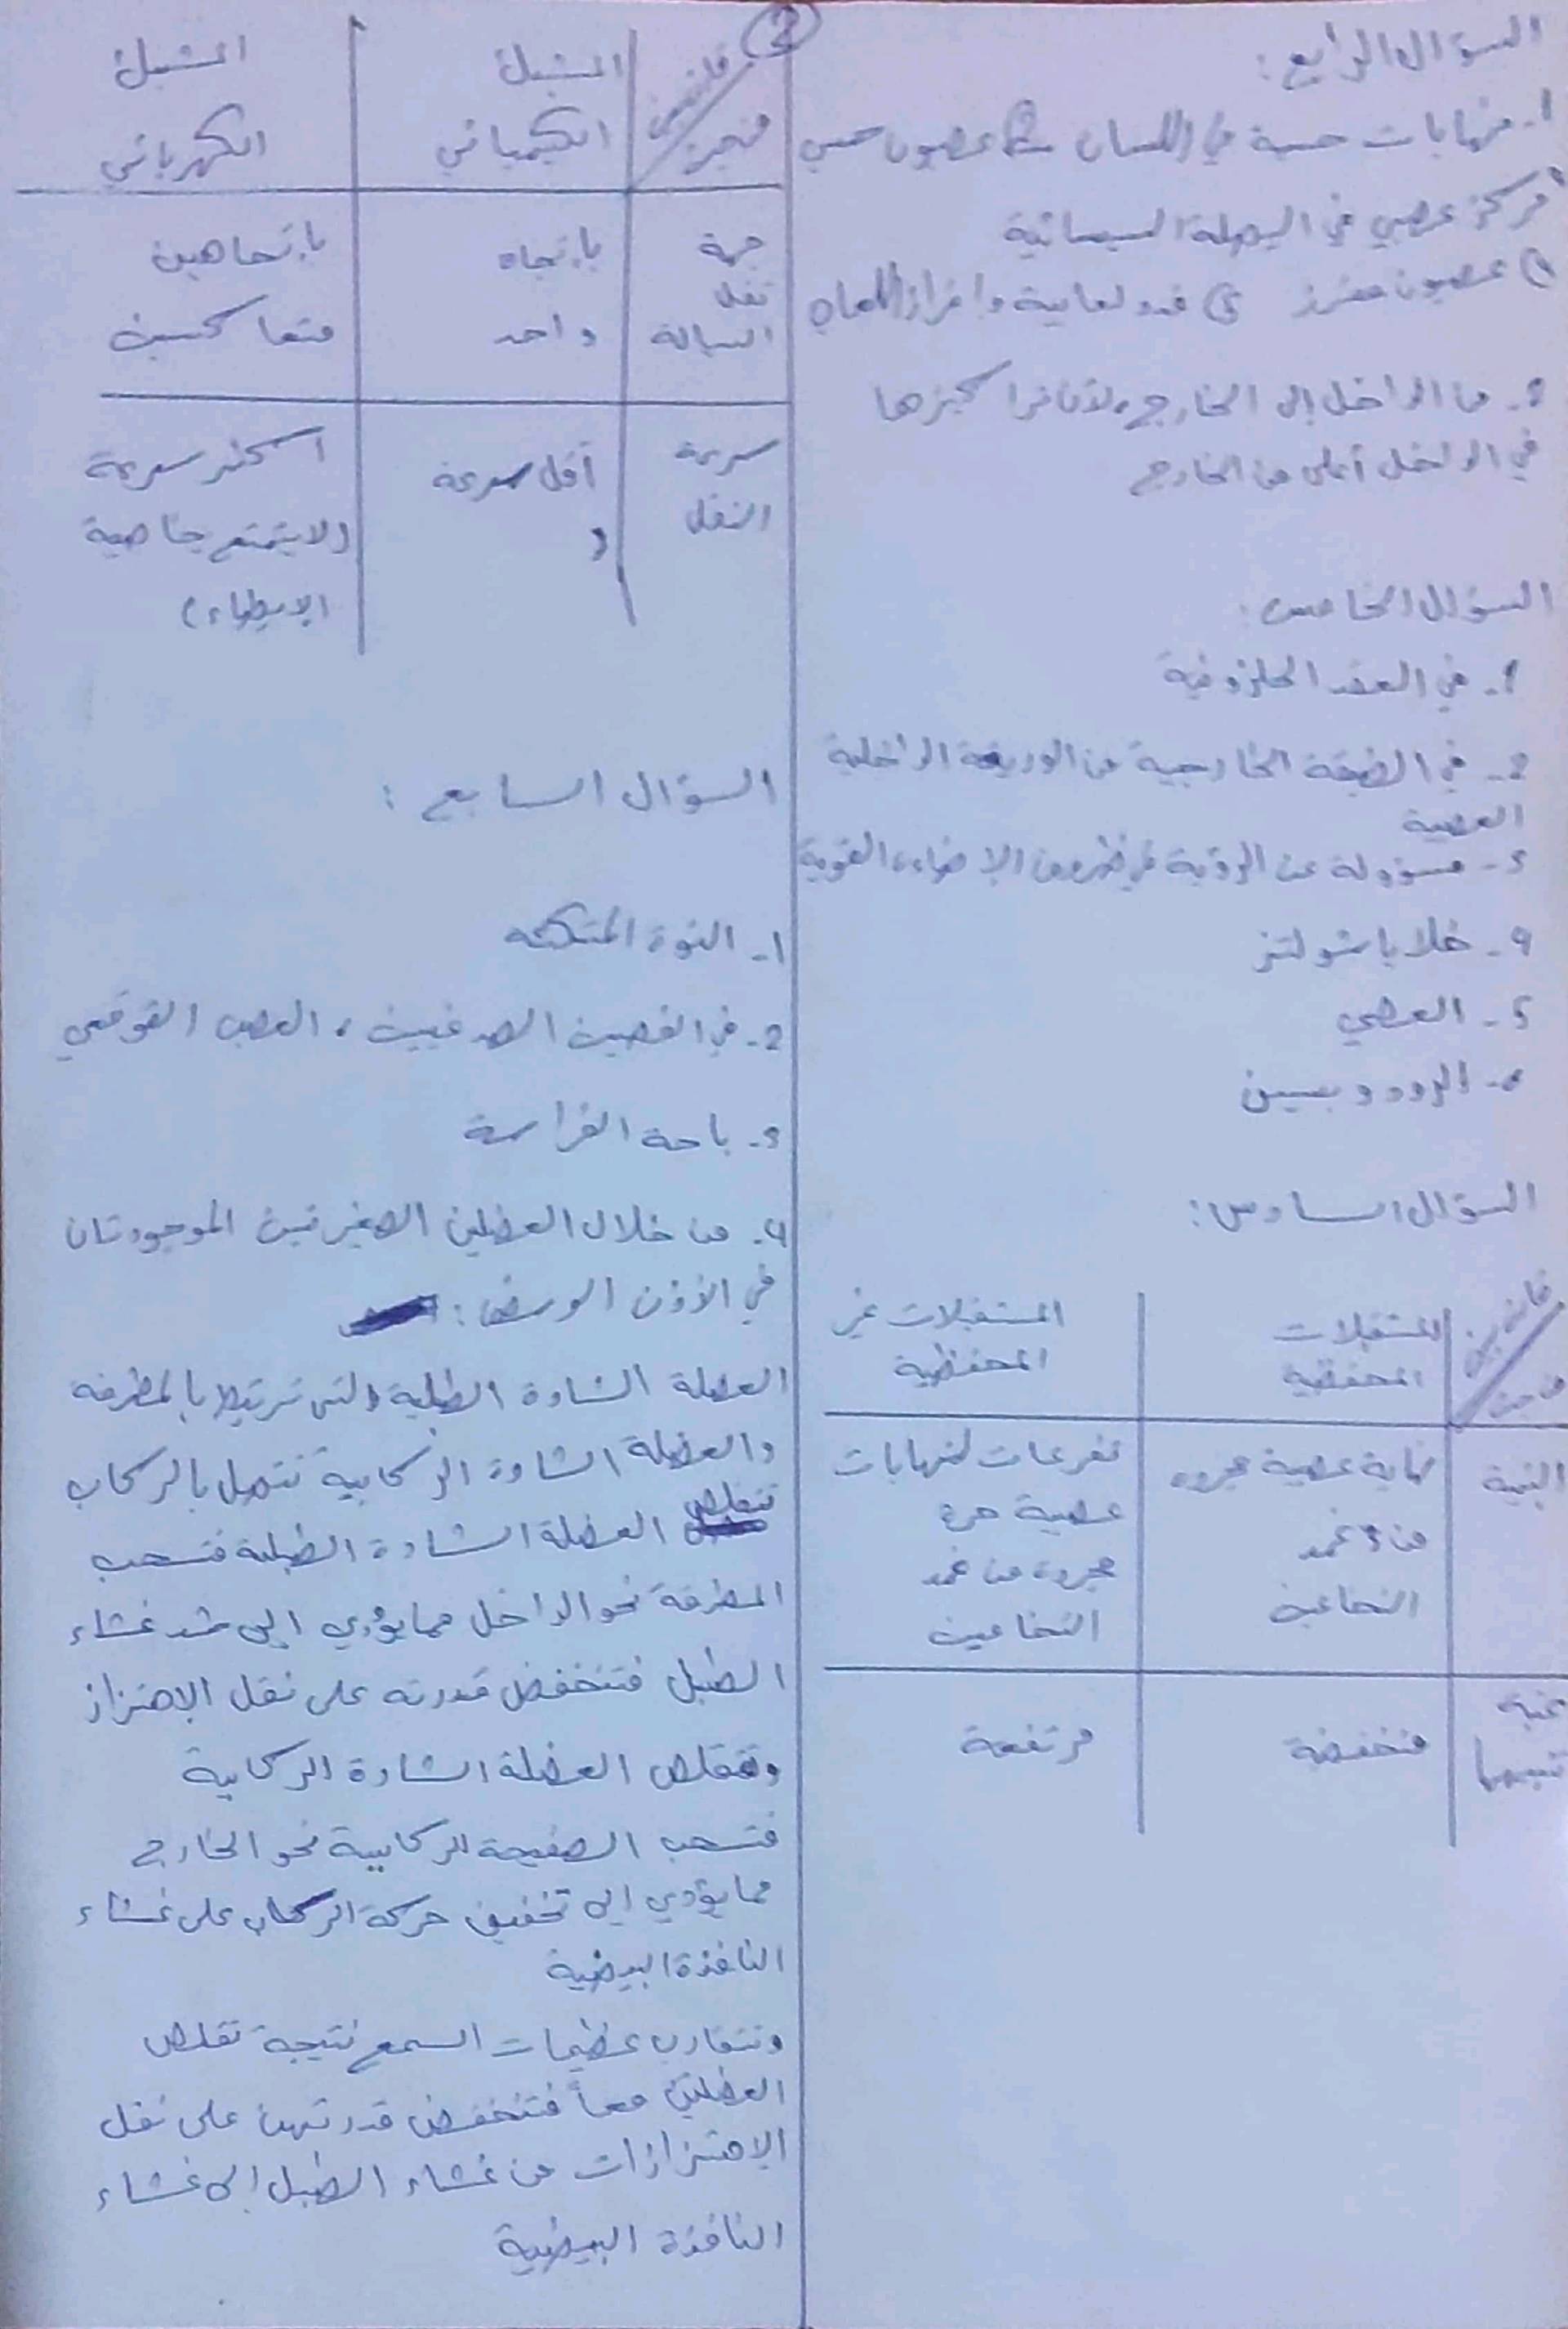 2
السؤال الرابع:
1- نهايات حسية في اللسان عصبون حسي
مركز عصبي في البصلة السيسائية
عصبون مفرز غدد لعابية وإفراز اللعاب
2- من الداخل إلى الخارج، لأن تراكيزها
في الداخل أعلى من الخارج
السؤال الخامس:
1- في العقد الحلزونية
2- في الطبقة الخارجية من الوريقة الداخلية
العصبية
3- مسؤولة عن الرؤية في ظروف الإضاءة القوية
4- خلايا شولتز
5- العصي
6- الرودوبسين
السؤال السادس:
قارن بين | المستقبلات | المستقبلات غير
من حيث | المحفظية | المحفظية
البنية | نهاية عصبية مجردة | تفرعات لنهايات
من غمد | عصبية حرة
النخاعين | مجردة من غمد
النخاعين
عتبة | منخفضة | مرتفعة
تنبيهها
قارن بين | المشبك | المشبك
من حيث | الكيميائي | الكهربائي
جهة | باتجاه | باتجاهين
نقل | واحد | متعاكسين
السيالة
سرعة | أقل سرعة | أكثر سرعة
النقل | (لا يتمتع بخاصية
الإبطاء)
السؤال السابع:
1- النواة المتكئة
2- في الفصين الصدغيين، العصب القوقعي
3- باحة الفراسة
4- من خلال العضلتين الصغيرتين الموجودتان
في الأذن الوسطى:
العضلة الشادة الطبلية والتي ترتبط بالمطرقة
والعضلة الشادة الركابية تتصل بالركاب
تتقلص العضلة الشادة الطبلية فتسحب
المطرقة نحو الداخل مما يؤدي إلى شد غشاء
الطبل فتنخفض قدرته على نقل الاهتزاز
وتتقلص العضلة الشادة الركابية
فتسحب الصفيحة الركابية نحو الخارج
مما يؤدي إلى تخفيف حركة الركاب على غشاء
النافذة البيضية
وتتقارب عظيمات السمع نتيجة تقلص
العضلتين معاً فتنخفض قدرتهن على نقل
الاهتزازات من غشاء الطبل إلى غشاء
النافذة البيضية